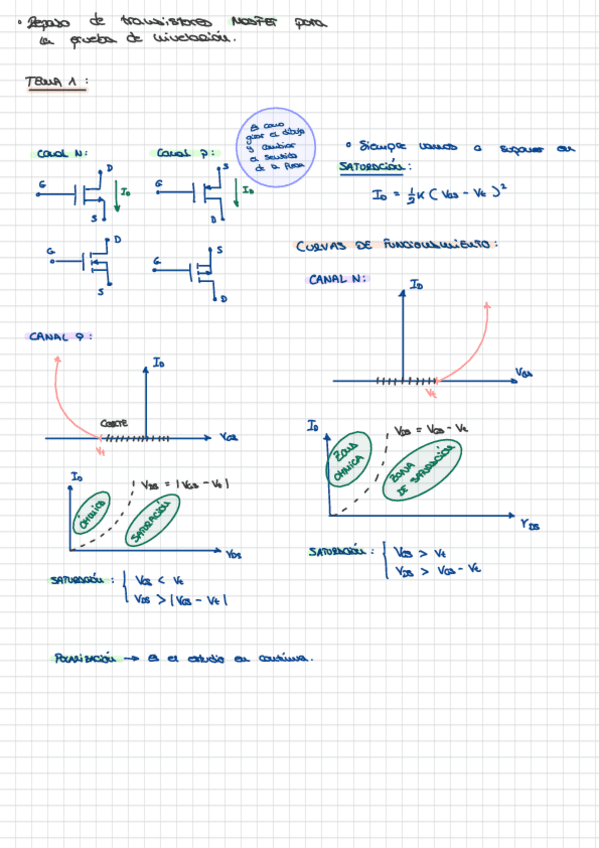 • Repaso de transistores MOSFET para
la prueba de nivelación.
TEMA 1:
Canal N:
Canal P:
Es como
girar el dibujo
y cambiar
el sentido
de la flecha
• Siempre vamos a suponer en
SATURACIÓN:
I_D = ½K (V_GS - V_t)²
G
D
S
I_D
G
S
D
I_D
G
D
S
G
S
D
CURVAS DE FUNCIONAMIENTO:
CANAL N:
I_D
V_GS
V_t
CANAL P:
I_D
CORTE
V_GS
V_t
I_D
V_DS = V_GS - V_t
ZONA
ÓHMICA
ZONA
DE SATURACIÓN
V_DS
I_D
V_DS = |V_GS - V_t|
ÓHMICA
SATURACIÓN
V_DS
SATURACIÓN: { V_GS > V_t
V_DS > V_GS - V_t
SATURACIÓN: { V_GS < V_t
V_DS > |V_GS - V_t|
POLARIZACIÓN → Es el estudio en continua.